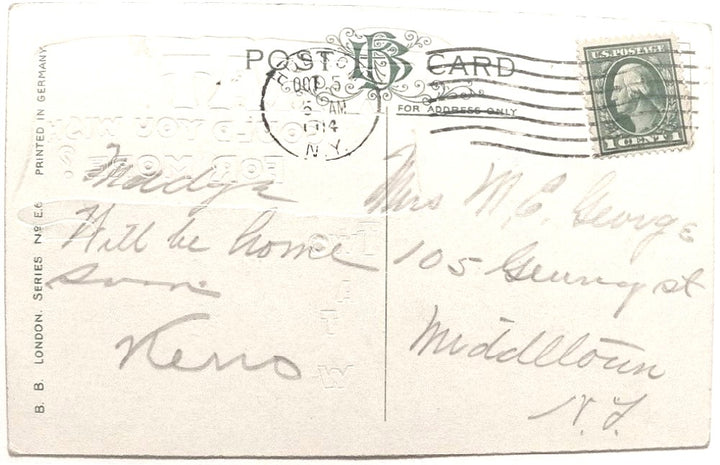 POST BB CARD
FOR ADDRESS ONLY
OCT 5
5 AM
1914
N.Y.
U.S. POSTAGE
1 CENT 1
Will be home
soon.
Mrs M. C. George
105 Geunny st
Middletown
N.Y.
B. B. LONDON. SERIES No E.6 PRINTED IN GERMANY.